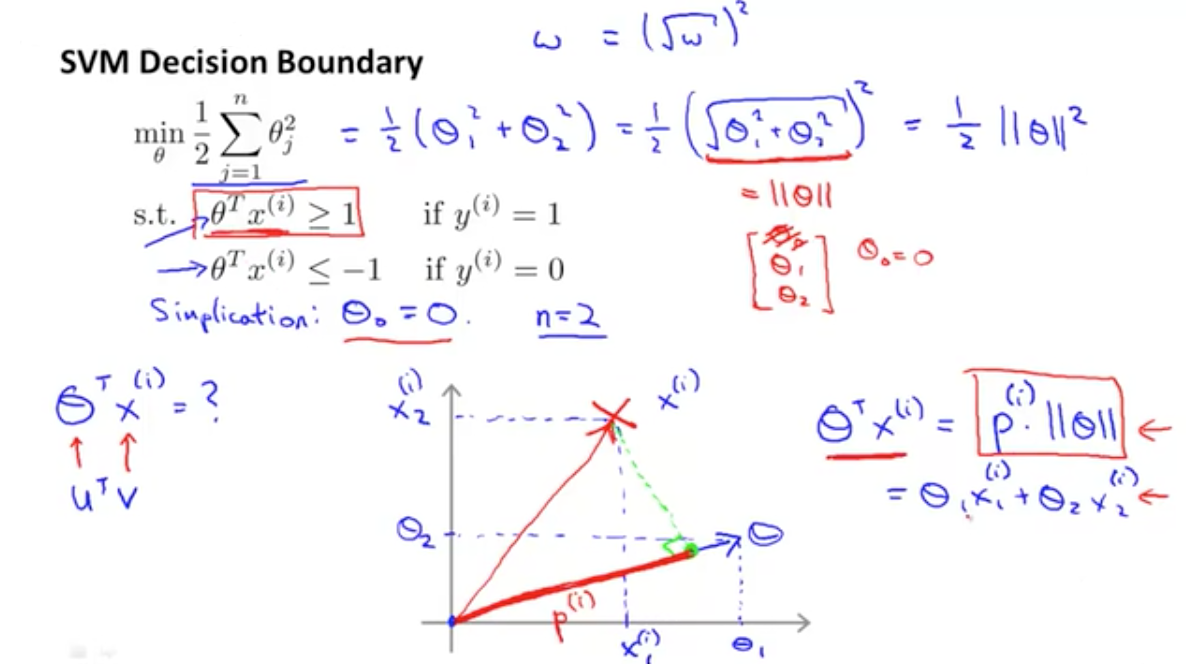 ω = (√ω)²
SVM Decision Boundary
min_θ 1/2 ∑_{j=1}^{n} θ_j² = 1/2 (θ₁² + θ₂²) = 1/2 (√(θ₁² + θ₂²))² = 1/2 ||θ||²
= ||θ||
s.t. θᵀx⁽ⁱ⁾ ≥ 1 if y⁽ⁱ⁾ = 1
θᵀx⁽ⁱ⁾ ≤ −1 if y⁽ⁱ⁾ = 0
[θ₁ θ₂] θ₀ = 0
Simplication: θ₀ = 0. n = 2
θᵀ x⁽ⁱ⁾ = ?
↑ ↑
uᵀ v
x₂⁽ⁱ⁾ x⁽ⁱ⁾
θ₂ θ
p⁽ⁱ⁾
x₁⁽ⁱ⁾ θ₁
θᵀ x⁽ⁱ⁾ = p⁽ⁱ⁾ · ||θ|| ←
= θ₁x₁⁽ⁱ⁾ + θ₂x₂⁽ⁱ⁾ ←